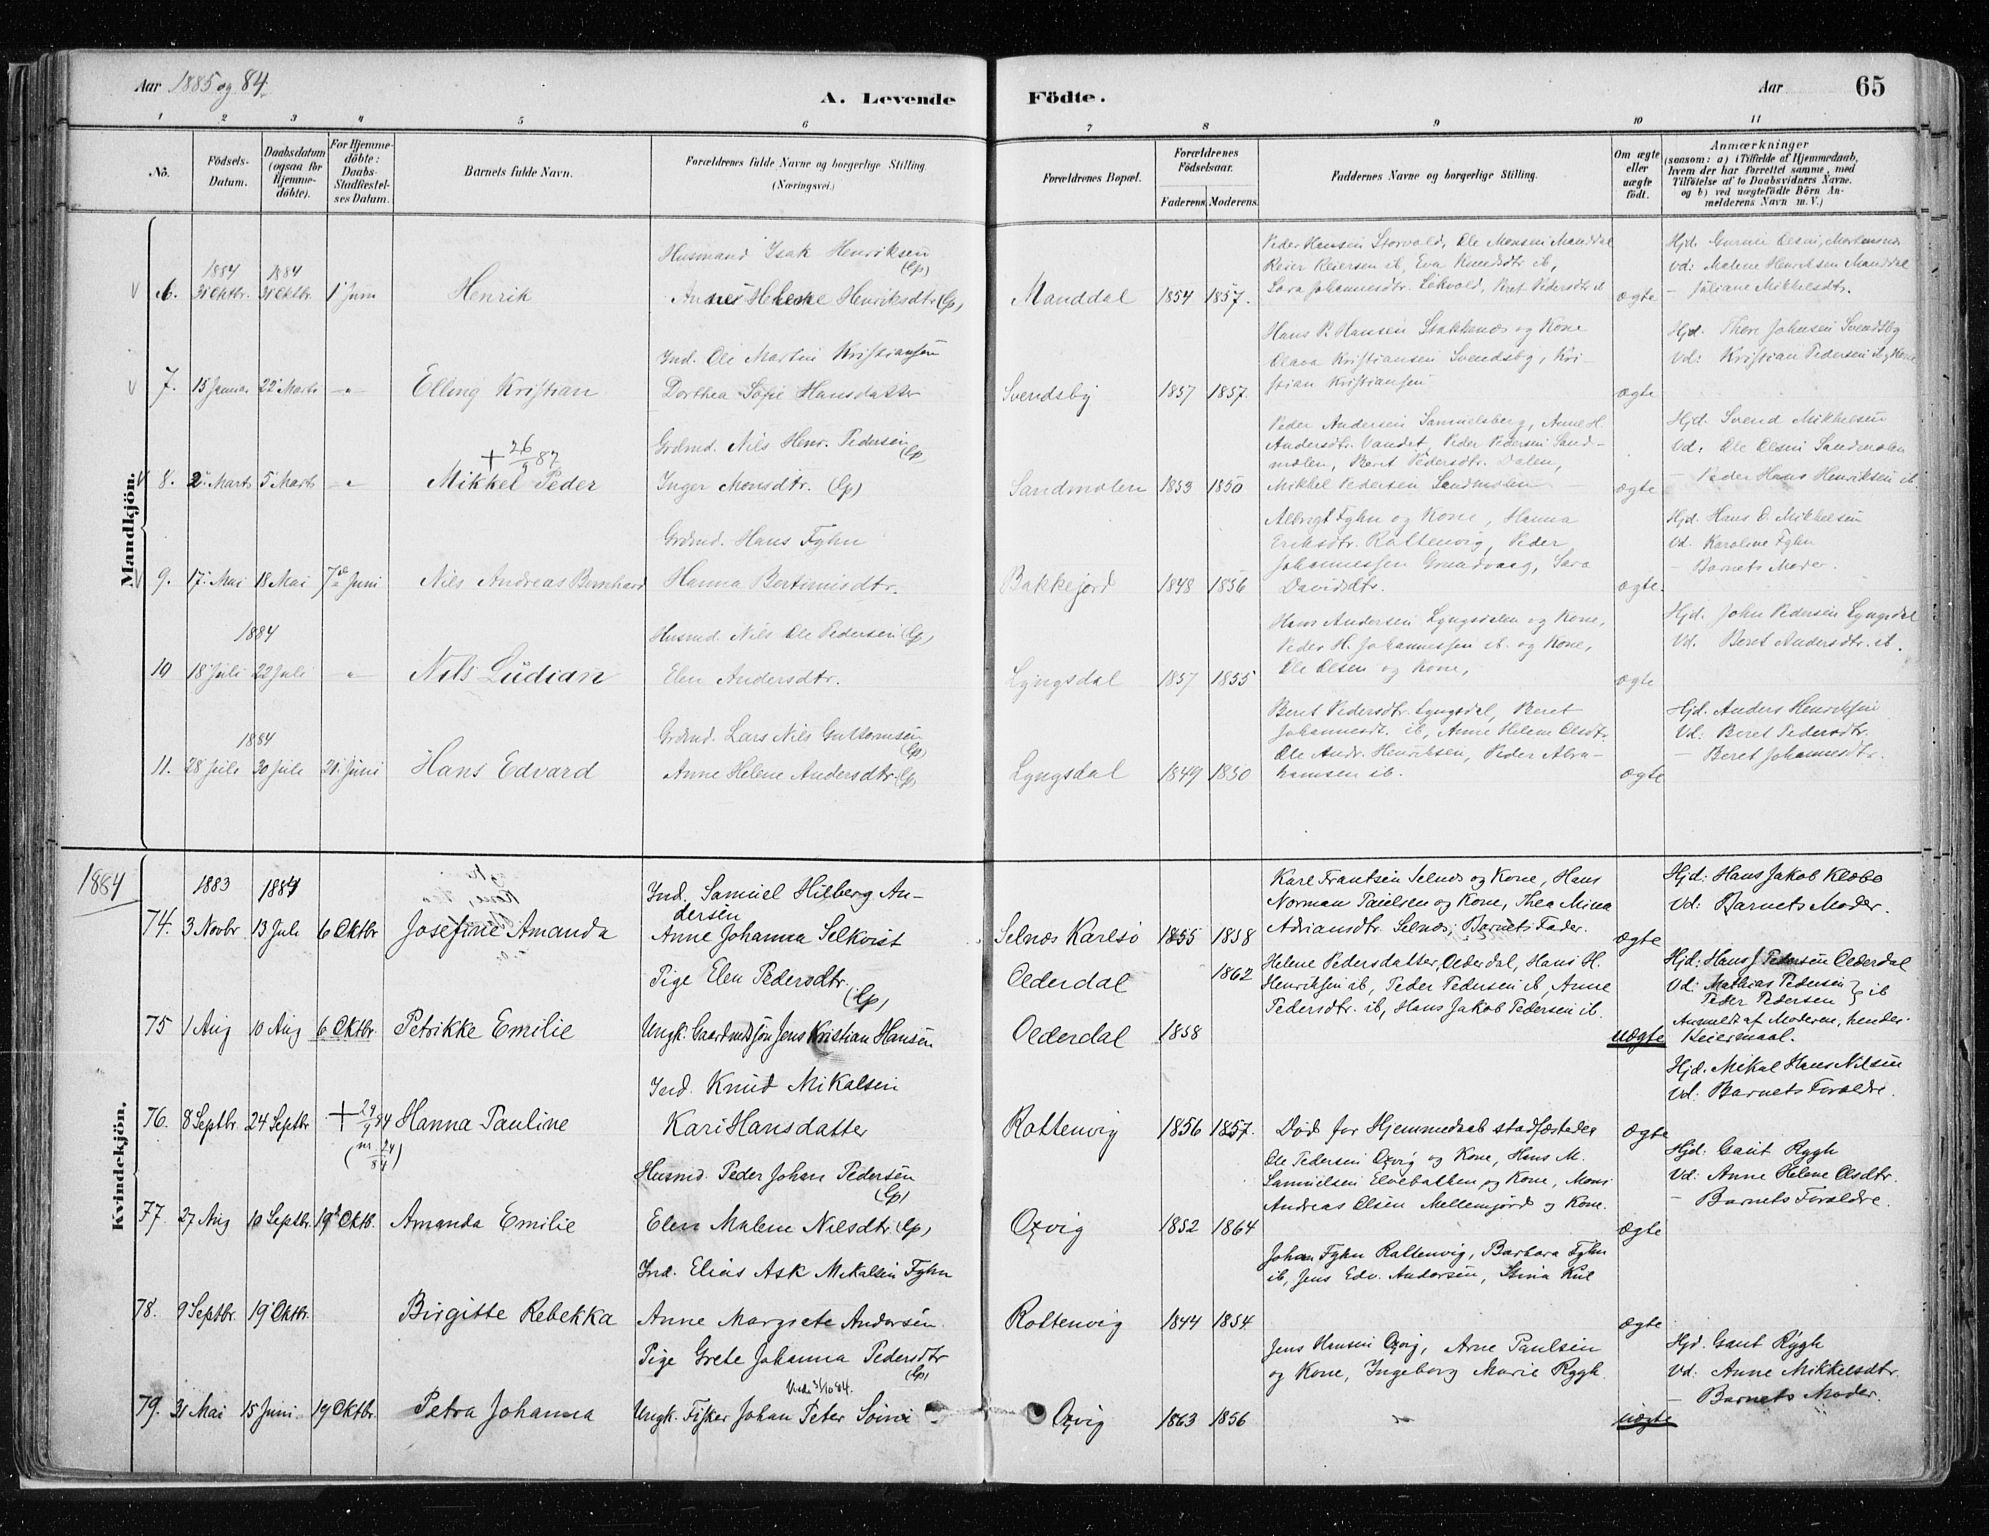 Aar 1885 og 84.
A. Levende Födte.
Aar
65
1 2 3 4 5 6 7 8 9 10 11
No.
Födsels-Datum.
Daabsdatum (ogsaa for Hjemmedöbte).
For Hjemmedöbte: Daabs-Stadfæstelses Datum.
Barnets fulde Navn.
Forældrenes fulde Navne og borgerlige Stilling. (Næringsvei.)
Forældrenes Bopæl.
Forældrenes Födselsaar.
Faderens. Moderens.
Faddernes Navne og borgerlige Stilling.
Om ægte eller uægte födt.
Anmærkninger
(saasom: a) i Tilfælde af Hjemmedaab, hvem der har forrettet samme, med Tilföielse af to Daabsvidners Navne. og b) ved uægtefödte Börn Anmelderens Navn m. V.)
Mandkjön.
6. 1884 31 Oktbr. 1884 31 Oktbr. 1 Juni Henrik
Husmand Isak Henriksen (Lp)
Anne Helene Henriksdtr (Lp)
Manddal 1854 1857.
Peder Hansen Storvold, Ole Monsen Manddal
Reier Reiersen ib, Eva Knudsdtr ib,
Sara Johannesdtr. Løkvold, Beret Pedersdtr ib
ægte
Hjd. Gurine Olsen, Mortensnes
Vd: Malene Henriksen Manddal
— Juliane Mikkelsdtr.
7. 15 Januar 22 Marts — " — Elling Kristian
Ind. Ole Martin Kristiansen
Dorthea Sofie Hansdatter
Svendsby 1857 1857.
Hans P. Hansen Stakkenæs og Kone
Olava Kristiansen Svendsby, Kristian Kristiansen
ægte
Hjd. Thore Johnsen Svendsby
Vd: Kristian Pedersen ib og Kone
8. 2 Marts 5 Marts — " + 26/9 87 Mikkel Peder
Grdmd. Nils Henr. Pedersen (Lp)
Inger Monsdtr. (Lp)
Sandmolen 1853 1850
Peder Andersen Samuelsberg, Anne H.
Andersdtr. Vandet, Peder Pedersen Sandmolen, Beret Pedersdtr. Dalen,
Mikkel Pedersen Sandmolen
ægte
Hjd. Svend Mikkelsen
Vd: Ole Olsen Sandmolen
— Peder Hans Henriksen ib.
9. 17 Mai 18 Mai 7de Juni Nils Andreas Bernhard
Grdmd. Hans Fyhn
Hanna Bertinusdtr.
Bakkejord 1848 1856
Albrigt Fyhn og Kone, Hanna
Eriksdtr. Rottenvig, Peder
Johannessen Grundvaag, Sara
Davidsdtr.
ægte.
Hjd. Hans O. Mikkelsen
Vd. Karoline Fyhn
— Barnets Moder.
10 18 Juli 1884 22 Juli — " — Nils Ludian
Husmd. Nils Ole Pedersen (Lp)
Elen Andersdtr.
Lyngsdal 1857 1855
Hans Andersen Lyngsdalen og Kone,
Peder H. Johannessen ib. og Kone,
Ole Olsen og Kone,
ægte
Hjd. John Pedersen Lyngsdal
Vd. Beret Andersdtr. ib.
11. 28 Juli 1884 30 Juli 21 Juni Hans Edvard
Grdmd. Lars Nils Guttormsen (Lp)
Anne Helene Andersdtr. (Lp)
Lyngsdal 1849 1850
Beret Pedersdtr. Lyngsdal, Beret
Johannesdt. ib, Anne Helene Olsdtr.
Ole Andr. Henriksen, Peder Abrahamsen ib.
ægte
Hjd. Anders Henriksen
Vd: Beret Pedersdtr.
— Beret Johannesdtr.
1884
Kvindekjön.
74. 1883 3 Novbr 1884 13 Juli 6 Oktbr Josefine Amanda
Ind. Samuel Hilberg Andersen
Anne Johanna Selkvist
Selnæs Karlsö 1855 1858
Karl Frantsen Selnæs og Kone, Hans
Norman Paulsen og Kone, Thea Mina
Adriansdtr. Selnæs, Barnets Fader.
ægte
Hjd: Hans Jakob Klæbo
Vd: Barnets Moder.
75 1 Aug 10 Aug 6 Oktbr. Petrikke Emilie
Pige Elen Pedersdtr. (Lp)
Ungk. Gaardmdssön Jens Kristian Hansen
Olderdal 1862
Olderdal 1858
Helene Pedersdatter, Olderdal, Hans H.
Henriksen ib, Peder Pedersen ib, Anne
Pedersdtr. ib, Hans Jakob Pedersen ib.
uægte
Hjd: Hans J Pedersen Olderdal
Vd: Mathias Pedersen
Peder Pedersen } ib
Anmeldt af Moderen, hendes
Leiersmaal.
76. 8 Septbr. 24 Septbr + 29/9 84 Hanna Pauline
Ind. Knud Mikalsen
Kari Hansdatter
Rottenvig 1856 1857.
Død før Hjemmedaab stadfæstedes
ægte
Hjd: Mikal Hans Nilsen
Vd: Barnets Forældre.
77. 27 Aug 10 Septbr. 19 Oktb. Amanda Emilie
Husmd. Peder Johan Pedersen (Lp)
Elen Malene Nilsdtr. (Lp)
Oxvig 1852 1864
Ole Pedersen Oxvig og Kone, Hans M.
Samuelsen Elvebakken og Kone, Mons
Andreas Olsen Mellemjord og Kone.
ægte
Hjd: Gaut Rygh
Vd: Anne Helene Olsdtr.
— Barnets Forældre.
78. 9 Septbr. 19 Oktbr. Birgitte Rebekka
Ind. Elias Ask Mikalsen Fyhn
Anne Margrete Andersen.
Rottenvig 1844 1854
Johan Fyhn Rottenvig, Barbara Fyhn
ib, Jens Edv. Andersen, Stina Kul
ægte
79. 31 Mai 15 Juni 19 Oktbr. Petra Johanna
Pige Grete Johanna Pedersdtr (Lp)
Ungk. Fisker Johan Peter Soini
Oxvig 1863 1856
Jens Hansen Oxvig, Arne Paulsen
og Kone, Ingeborg Marie Rygh.
uægte
Hjd. Gaut Rygh
Vd. Anne Mikkelsdtr.
— Barnets Moder.